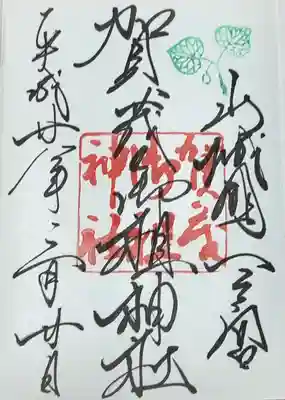 山城國一之宮
賀茂御祖神社
賀茂御祖神社
平成廿八年二月廿日